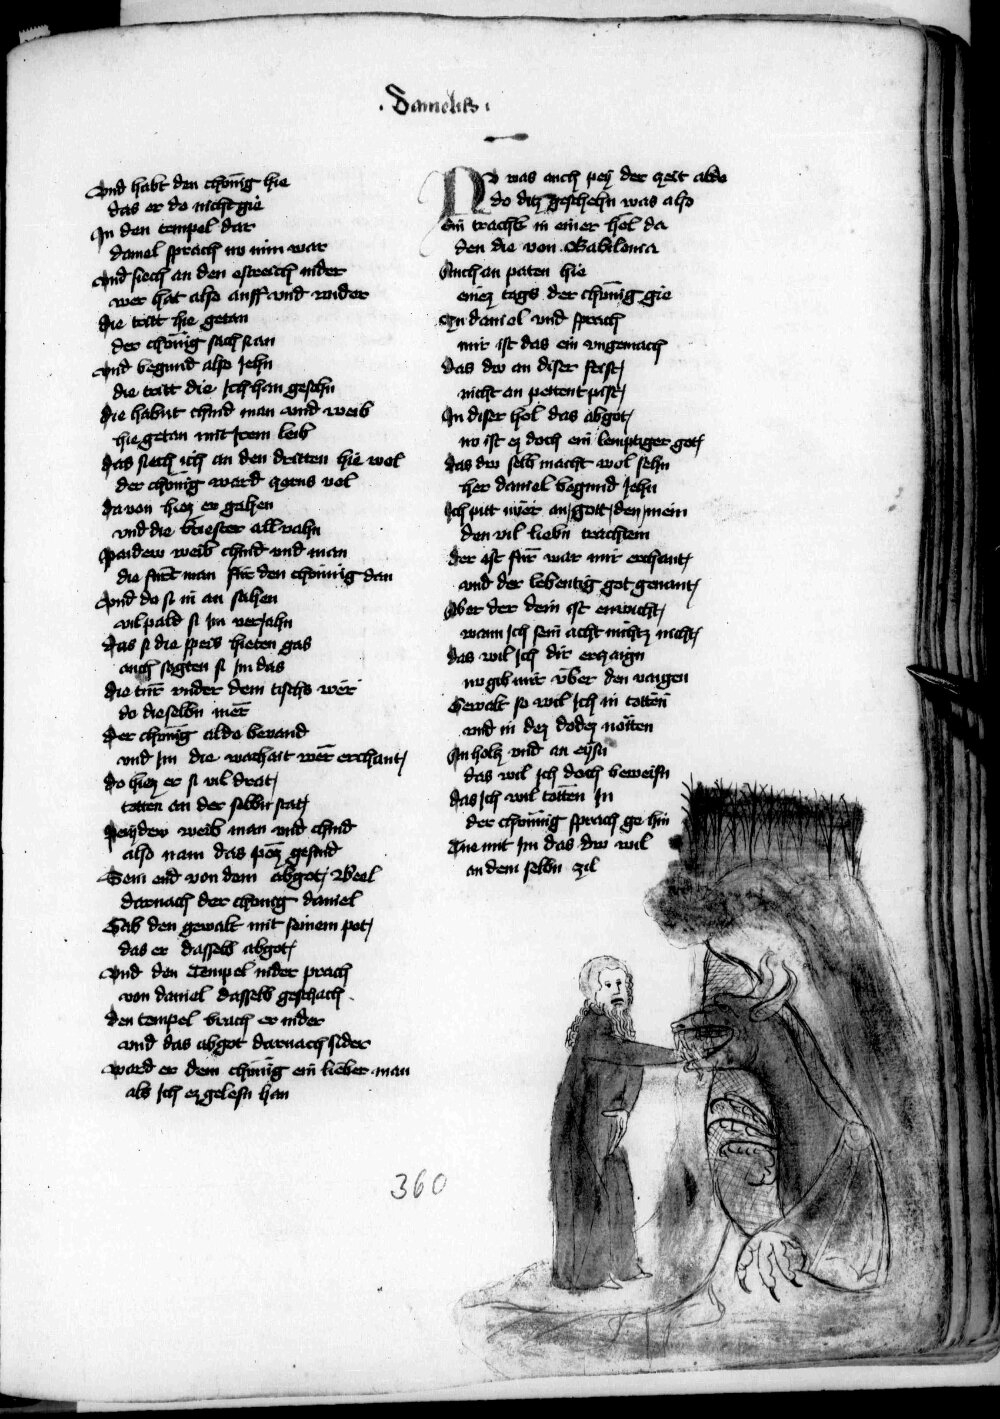 . Danielis .
Vnd habt den chönig hie
das er do nicht gie
In den tempel dar
daniel sprach nu nim war
Vnd siech an den estreich nider
wer hat also auff vnd wider
die tritt hie getan
der chönig sach si an
Vnd begund also Jehn
die tritt die Jch han gesehn
die habnt chind man vnd weib
hie getan mit Jrem leib
das siech ich an den dritten hie wol
der chönig ward zorns vol
da von hiez er gahen
vnd die briester all vahn
Paidew weib chind vnd man
die fürt man für den chönnig dan
Vnd do si in an sahen
vil pald si Jm verJahn
das si die speis hieten gas
auch sagten si Jm das
die tür vnder dem tischs wer
do dieselbn mer
Der chönig aldo bevand
vnd Jm die warhait wer erchant
do hiez er si vil drat
totten an der selbn stat
Peydew weib man vnd chind
also nam das pöz gesind
Sein end von dem abgot Beel
darnach der chonig daniel
Gab den gewalt mit seinem pot
das er dasselb abgot
Vnd den Tempel nider prach
von daniel dasselb geschach
den tempel brach er nider
vnd das abgot darnach sider
ward er dem chönig ein lieber man
als Jch ez gelesn han
NV was auch pey der zeit aldo
do ditz geschehn was also
ein trachk in einer hol da
den die von Babilonia
Auch an paten hie
einez tags der chönig gie
Zu daniel vnd sprach
mir ist das ein vngemach
das dw an diser frist
nicht an pettent pist
In diser hol das abgot
nu ist ez doch ein lemptiger got
das dw selb macht wol sehn
her daniel begund Jehn
Jch pitt nwer an gott den mein
den vil liebn trachtein
der ist für war mir erchant
vnd der lebentig got genant
Aber der dein ist enwicht
wann Jch sein acht nichtz nicht
das wil Jch dir erzaign
nu gib mir über den vaigen
Gewalt so wil Jch in totten
vnd in dez dodez nötten
An holtz vnd an eysn
das wil Jch doch beweisn
das Jch wil totten Jn
der chönnig sprach ge hin
Tue mit Jm das dw wil
an dem selbn zil
360